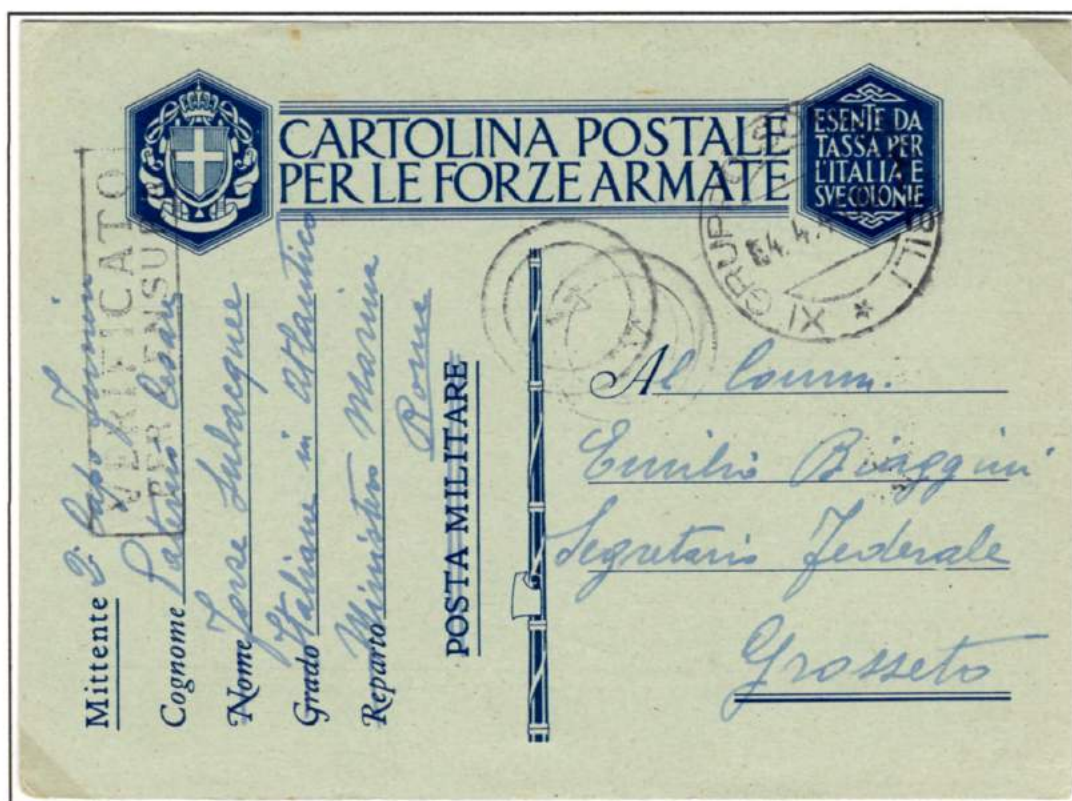 CARTOLINA POSTALE
PER LE FORZE ARMATE
ESENTE DA
TASSA PER
L'ITALIA E
SVE COLONIE
XI GRUPPO
4.4.
BILI *
VERIFICATO
PER CENSURA
Mittente 2° Capo
Cognome Paterno Cesare
Nome Forze Subacquee
Grado Italiane in Atlantico
Reparto Ministro Marina
Roma
POSTA MILITARE
Al Comm.
Emilio Biaggini
Segretario Federale
Grosseto